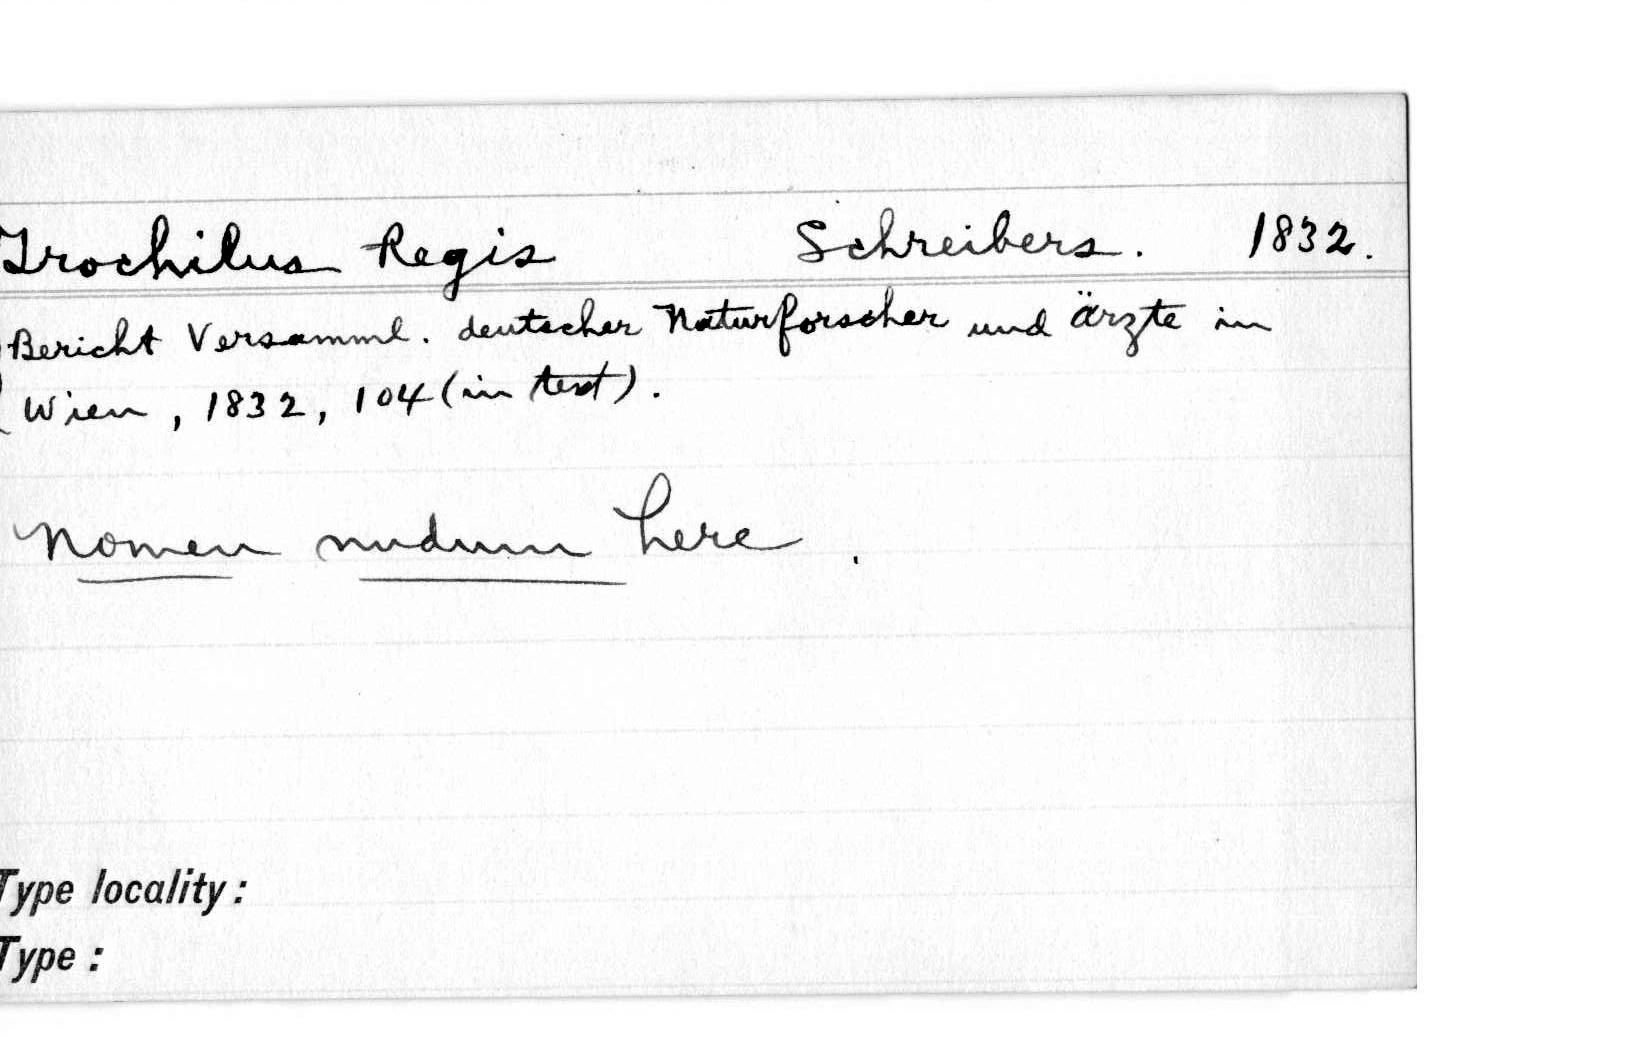 Trochilus Regis Schreibers. 1832.
Bericht Versamml. deutscher Naturforscher und ärzte in
Wien, 1832, 104 (in text).
Nomen nudum here.
Type locality:
Type: